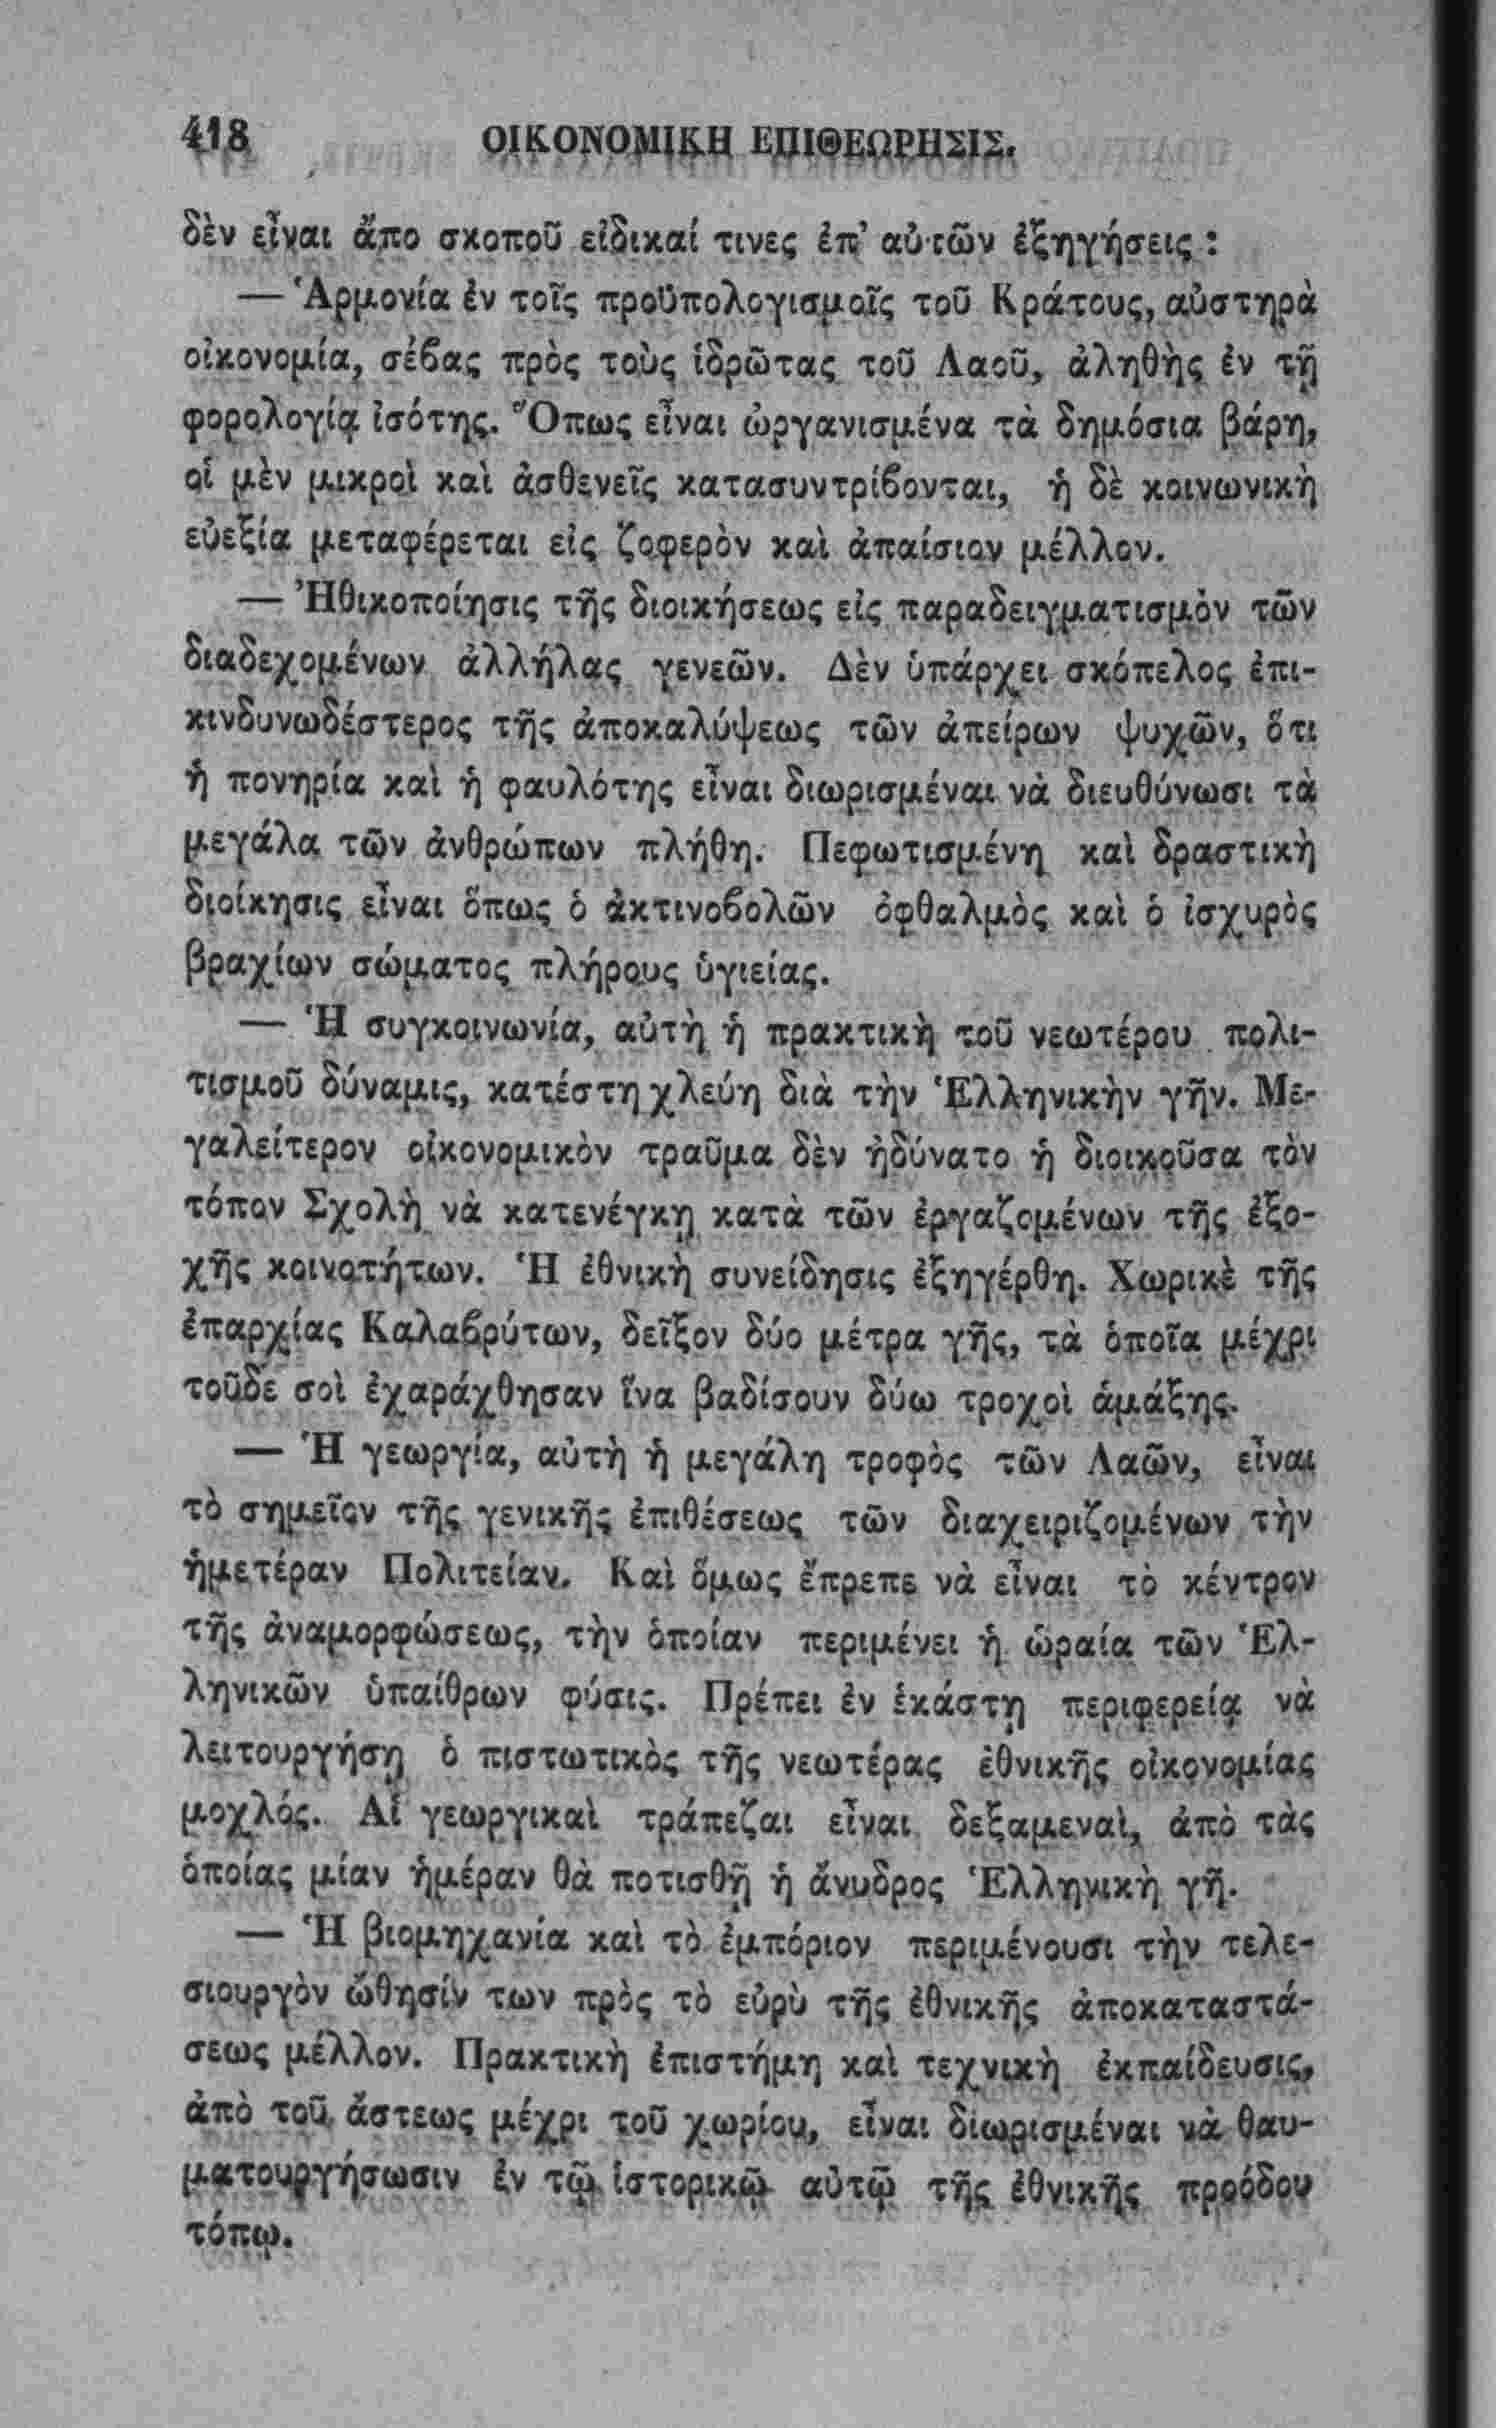 418 ΟΙΚΟΝΟΜΙΚΗ ΕΠΙΘΕΩΡΗΣΙΣ.
δὲν εἶναι ἄπο σκοποῦ εἰδικαί τινες ἐπ’ αὐτῶν ἐξηγήσεις :
— Ἁρμονία ἐν τοῖς προϋπολογισμοῖς τοῦ Κράτους, αὐστηρὰ
οἰκονομία, σέβας πρὸς τοὺς ἱδρῶτας τοῦ Λαοῦ, ἀληθὴς ἐν τῇ
φορολογίᾳ ἰσότης. Ὅπως εἶναι ὠργανισμένα τὰ δημόσια βάρη,
οἱ μὲν μικροὶ καὶ ἀσθενεῖς κατασυντρίβονται, ἡ δὲ κοινωνικὴ
εὐεξία μεταφέρεται εἰς ζοφερὸν καὶ ἀπαίσιον μέλλον.
— Ἠθικοποίησις τῆς διοικήσεως εἰς παραδειγματισμὸν τῶν
διαδεχομένων ἀλλήλας γενεῶν. Δὲν ὑπάρχει σκόπελος ἐπι-
κινδυνωδέστερος τῆς ἀποκαλύψεως τῶν ἀπείρων ψυχῶν, ὅτι
ἡ πονηρία καὶ ἡ φαυλότης εἶναι διωρισμέναι νὰ διευθύνωσι τὰ
μεγάλα τῶν ἀνθρώπων πλήθη. Πεφωτισμένη καὶ δραστικὴ
διοίκησις εἶναι ὅπως ὁ ἀκτινοβολῶν ὀφθαλμὸς καὶ ὁ ἰσχυρὸς
βραχίων σώματος πλήρους ὑγιείας.
— Ἡ συγκοινωνία, αὐτὴ ἡ πρακτικὴ τοῦ νεωτέρου πολι-
τισμοῦ δύναμις, κατέστη χλεύη διὰ τὴν Ἑλληνικὴν γῆν. Με-
γαλείτερον οἰκονομικὸν τραῦμα δὲν ἠδύνατο ἡ διοικοῦσα τὸν
τόπον Σχολὴ νὰ κατενέγκῃ κατὰ τῶν ἐργαζομένων τῆς ἐξο-
χῆς κοινοτήτων. Ἡ ἐθνικὴ συνείδησις ἐξηγέρθη. Χωρικὲ τῆς
ἐπαρχίας Καλαβρύτων, δεῖξον δύο μέτρα γῆς, τὰ ὁποῖα μέχρι
τοῦδε σοὶ ἐχαράχθησαν ἵνα βαδίσουν δύω τροχοὶ ἁμάξης.
— Ἡ γεωργία, αὐτὴ ἡ μεγάλη τροφὸς τῶν Λαῶν, εἶναι
τὸ σημεῖον τῆς γενικῆς ἐπιθέσεως τῶν διαχειριζομένων τὴν
ἡμετέραν Πολιτείαν. Καὶ ὅμως ἔπρεπε νὰ εἶναι τὸ κέντρον
τῆς ἀναμορφώσεως, τὴν ὁποίαν περιμένει ἡ ὡραία τῶν Ἑλ-
ληνικῶν ὑπαίθρων φύσις. Πρέπει ἐν ἑκάστῃ περιφερείᾳ νὰ
λειτουργήσῃ ὁ πιστωτικὸς τῆς νεωτέρας ἐθνικῆς οἰκονομίας
μοχλός. Αἱ γεωργικαὶ τράπεζαι εἶναι δεξαμεναὶ, ἀπὸ τὰς
ὁποίας μίαν ἡμέραν θὰ ποτισθῇ ἡ ἄνυδρος Ἑλληνικὴ γῆ.
— Ἡ βιομηχανία καὶ τὸ ἐμπόριον περιμένουσι τὴν τελε-
σιουργὸν ὤθησίν των πρὸς τὸ εὐρὺ τῆς ἐθνικῆς ἀποκαταστά-
σεως μέλλον. Πρακτικὴ ἐπιστήμη καὶ τεχνικὴ ἐκπαίδευσις,
ἀπὸ τοῦ ἄστεως μέχρι τοῦ χωρίου, εἶναι διωρισμέναι νὰ θαυ-
ματουργήσωσιν ἐν τῷ ἱστορικῷ αὐτῷ τῆς ἐθνικῆς προόδου
τόπῳ.